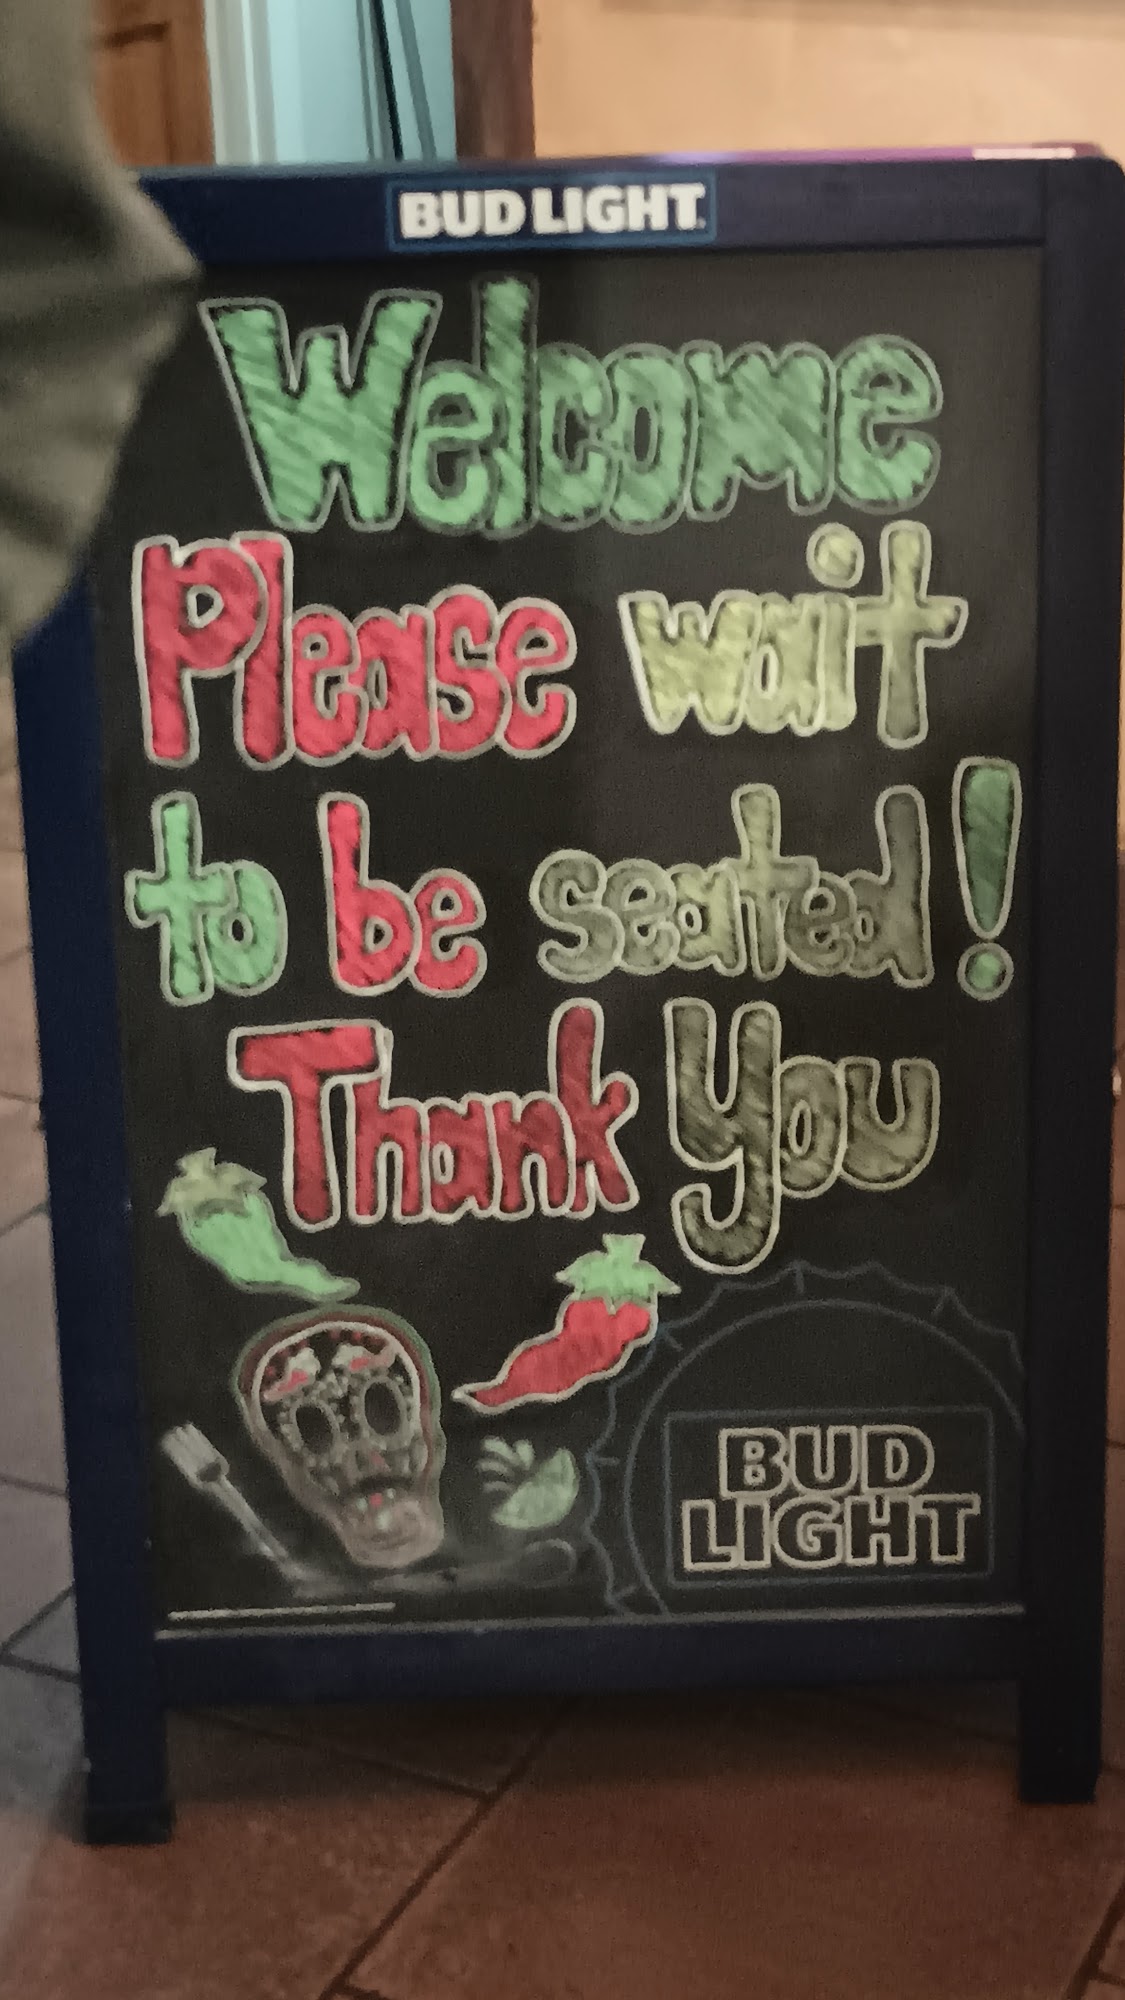 BUD LIGHT
Welcome
Please wait
to be seated!
Thank You
BUD
LIGHT